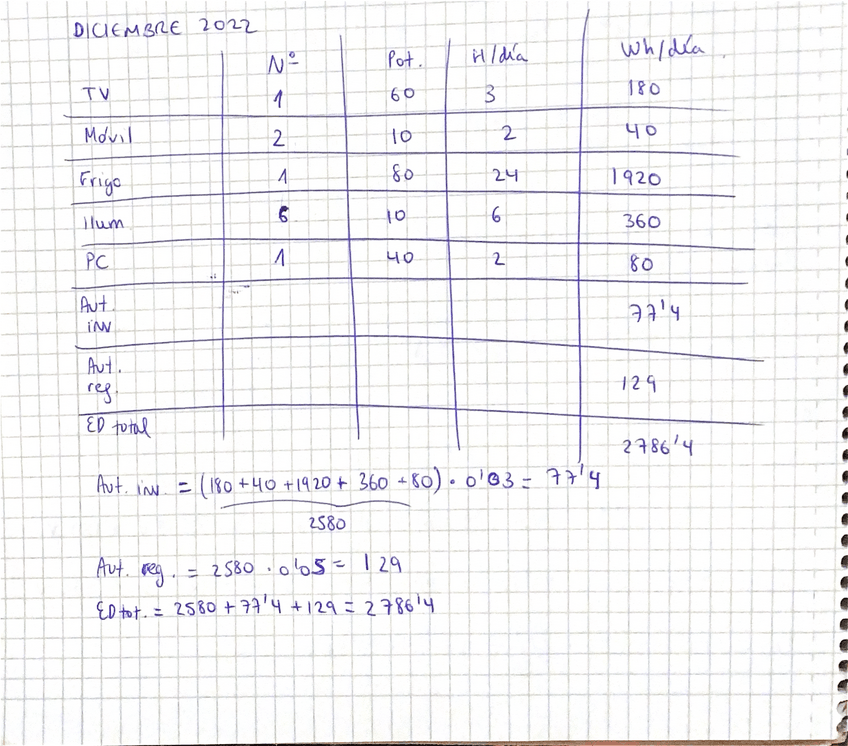 DICIEMBRE 2022
Nº Pot. H/día Wh/día
TV 1 60 3 180
Móvil 2 10 2 40
Frigo 1 80 24 1920
Ilum 6 10 6 360
PC 1 40 2 80
Aut. inv 77'4
Aut. reg. 129
ED total 2786'4
Aut. inv. = (180+40+1920+360+80) · 0'03 = 77'4
2580
Aut. reg. = 2580 · 0'05 = 129
EDtot. = 2580 + 77'4 + 129 = 2786'4